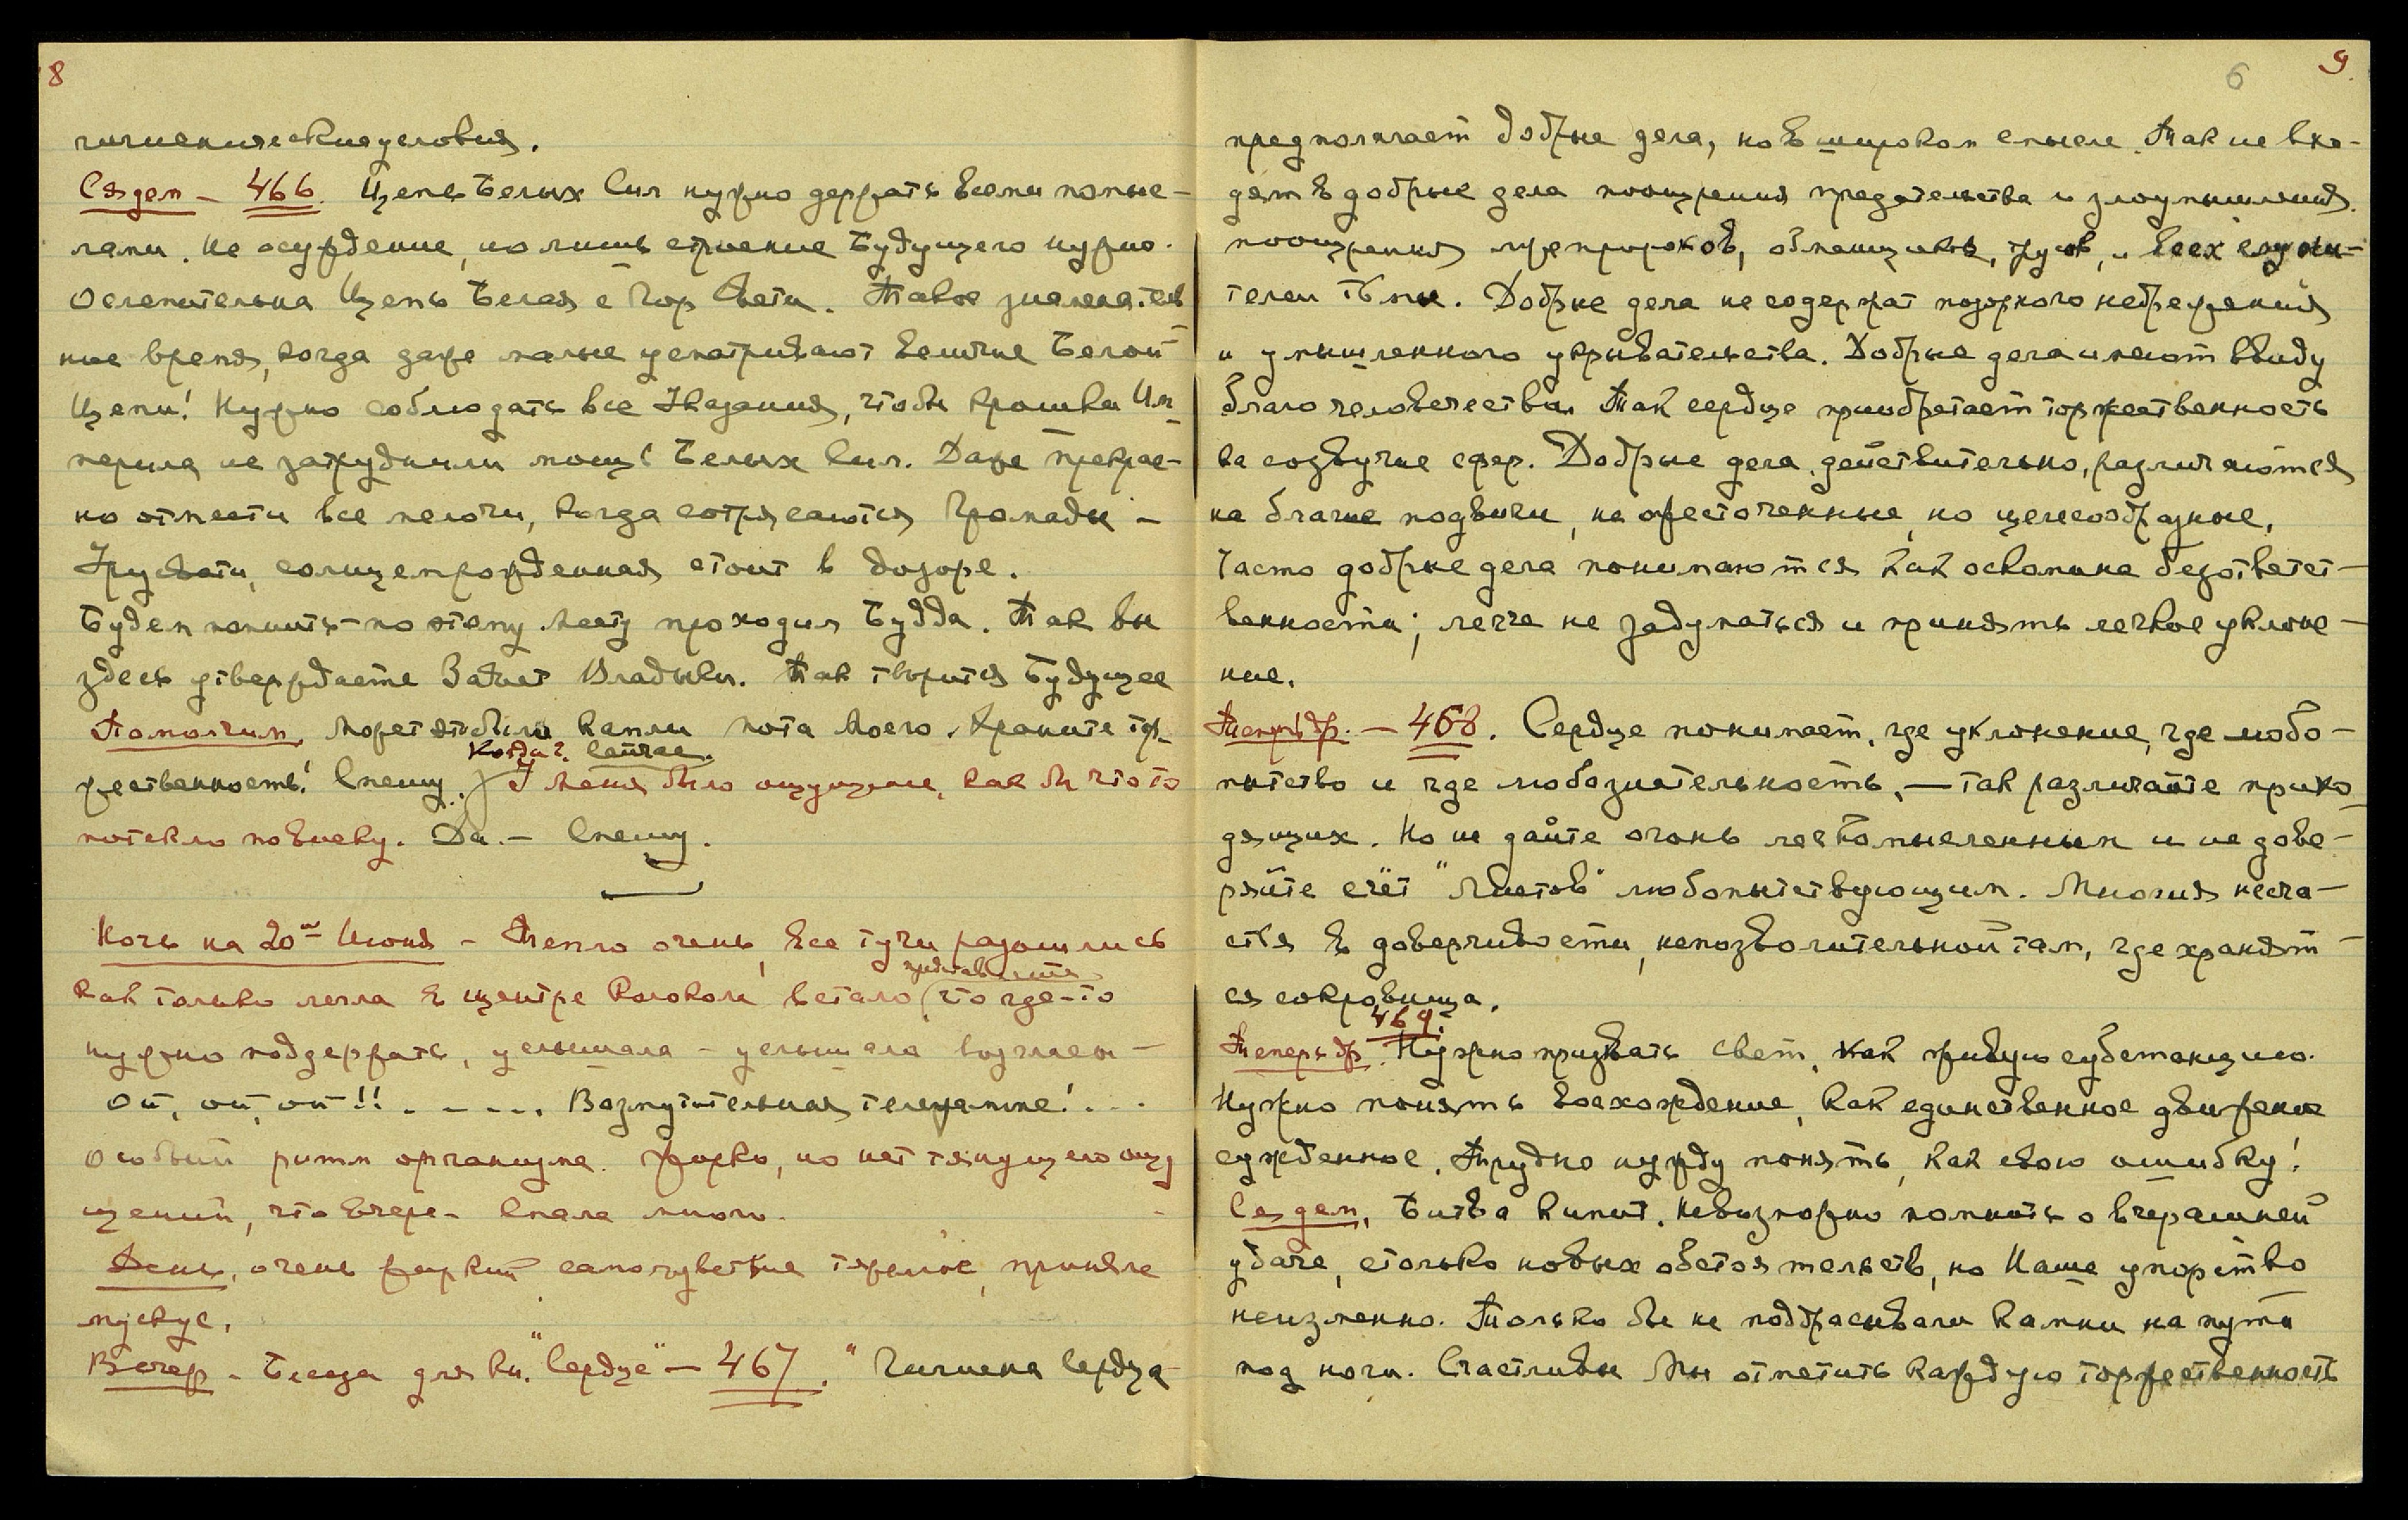 8
гигиенические условия.
Сядем – 466. Цепь Белых Сил нужно держать всеми помыс-
лами. Не осуждение, но лишь строение Будущего нужно.
Ослепительна Цепь Белая с Гор Света. Такое знаменатель
ное время, когда даже малые усматривают величие Белой
Цепи! Нужно соблюдать все Указания, чтобы крошки Им-
перила не затруднили мощь Белых Сил. Даже прекрас-
но отмести все мелочи, когда сотрясаются Громады –
Урусвати, солнцемрожденная стоит в дозоре.
Будем помнить – по этому месту проходил Будда. Так вы
здесь утверждаете Завет Владыки. Так творится Будущее
Помолчим. Может это были капли пота Моего. Храните тор-
Когда?. Сейчас.
жественность! Спешу. У меня было ощущение, как бы что то
потекло по виску. Да. – Спешу.
Ночь на 20ое Июня – Тепло очень, все тучи разошлись
представление
как только легла в центре колокола встало (что где-то
нужно поддержать, услышала – услышала возгласы –
ой, ой, ой!! . – – . . . Возмутительная телеграмма! . . .
Особый ритм организма. Жарко, но нет тянущего ощу
щений, что вчера – Спала много.
День, очень жаркий самочувствие тяжелое, приняла
мускус.
Вечер – Беседа для кн. "Сердце" – 467. "Гигиена Сердца
6 9.
предполагает добрые дела, но в широком смысле. Так не вхо-
дят в добрые дела поощрения предательства и злоумышления.
поощрения лжепророков, обманщиков, трусов, и всех служи-
телей тьмы. Добрые дела не содержат позорного небрежения
и умышленного укрывательства. Добрые дела имеют ввиду
благо человечества. Так сердце приобретает торжественность
ка созвучие сфер. Добрые дела, действительно, различаются
на благие подвиги, на ожесточенные, но целесообразные.
Часто добрые дела понимаются как оскомина безответст-
венности; легче не задуматься и принять легкое уклоне-
ние.
Теперь др. – 468. Сердце понимает, где уклонение, где любо-
пытство и где любознательность, – так различайте прихо
дящих. Но не дайте огонь легкомысленным и не дове-
ряйте счёт "Листов" любопытствующим. Многия несча-
стья в доверчивости, непозволительной там, где хранят-
ся сокровища.
469.
Теперь др. Нужно призвать свет, как живую субстанцию.
Нужно понять восхождение, как единственное движение
сужденное. Трудно нужду понять, как свою ошибку!
Сядем, Битва кипит. Невозможно помнить о вчерашней
удаче, столько новых обстоятельств, но Наше упорство
неизменно. Только бы не подбрасывали камни на пути
под ноги. Счастливы Мы отметить каждую торжественность